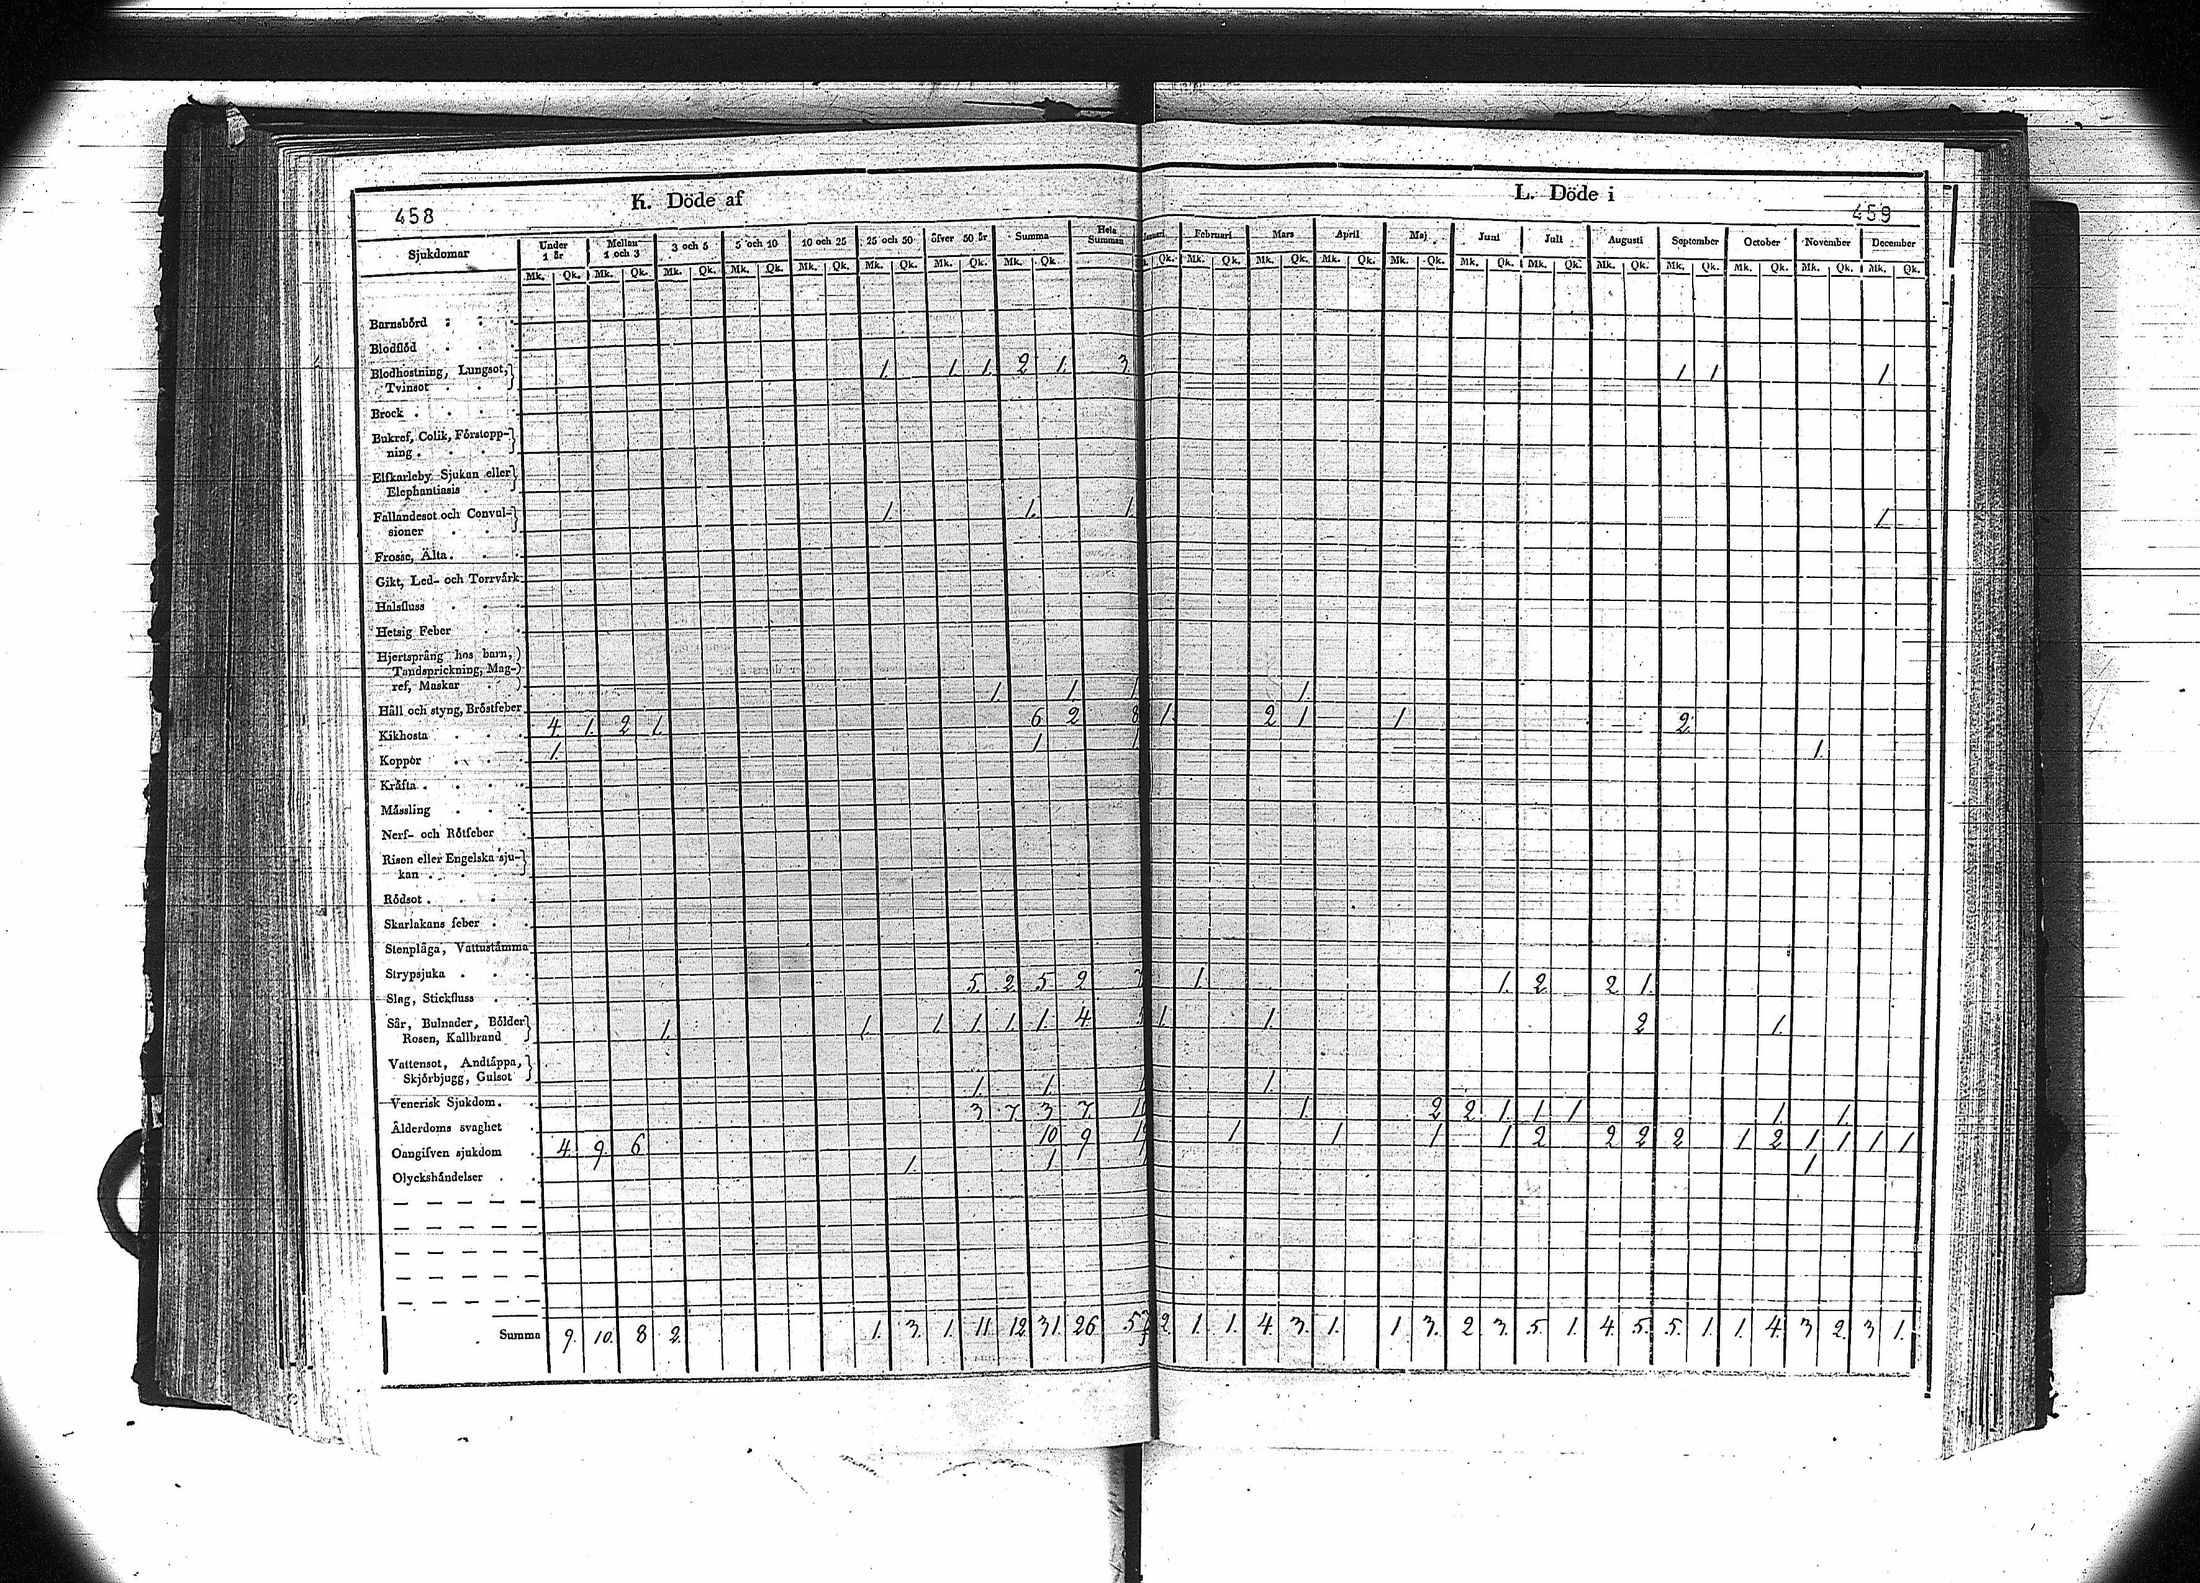 K. Döde af
L. Döde i
458
459
Sjukdomar Under 1 år Mellan 1 och 3 3 och 5 5 och 10 10 och 25 25 och 50 öfver 50 år Summa Hela Summan Januari. Februari Mars April Maj Juni Juli Augusti September October November December
Mk. Qk. Mk. Qk. Mk. Qk. Mk. Qk. Mk. Qk. Mk. Qk. Mk. Qk. Mk. Qk. Qk. Mk. Qk. Mk. Qk. Mk. Qk. Mk. Qk. Mk. Qk. Mk. Qk. Mk. Qk. Mk. Qk. Mk. Qk. Mk. Qk. Mk. Qk.
Barnsbörd
Blodflöd
Blodhostning, Lungsot, 1. 1. 1. 2 1. 3 1 1 1
Tvinsot
Brock
Bukref, Colik, Förstopp-
ning
Elfkarleby Sjukan eller
Elephantiasis
Fallandesot och Convul- 1. 1. 1. 1.
sioner
Frosse, Älta
Gikt, Led- och Torrvärk
Halsfluss
Hetsig Feber
Hjertsprång hos barn,
Tandsprickning, Mag-
ref, Maskar
Håll och styng, Bröstfeber 1. 1 1 1.
Kikhosta 4. 1. 2 1. 6 2 8 1. 2 1 1 2.
Koppor 1. 1 1 1.
Kräfta
Mässling
Nerf- och Rötfeber
Risen eller Engelska sju-
kan
Rödsot
Skarlakans feber
Stenplåga, Vattustämma
Strypsjuka
Slag, Stickfluss 5. 2. 5. 2 7 1. 1. 2 2 1.
Sår, Bulnader, Bölder 1. 1. 1. 1. 1. 1. 4 5 1. 1. 2 1.
Rosen, Kallbrand
Vattensot, Andtäppa,
Skjörbjugg, Gulsot 1. 1. 1 1.
Venerisk Sjukdom
Ålderdoms svaghet 3 7. 3 7. 1 2 2 1 1 1 1. 1.
Oangifven sjukdom 4. 9. 6 10 9 19 1 1 1 1 2 2 2 2 1 2 1 1 1 1
Olyckshändelser 1. 1 1 1
Summa 9. 10. 8 2. 1. 3. 1. 11. 12 31. 26 57 2. 1. 1. 4. 3. 1. 1 3. 2 3. 5. 1. 4. 5. 5. 1. 1. 4. 3 2. 3 1.